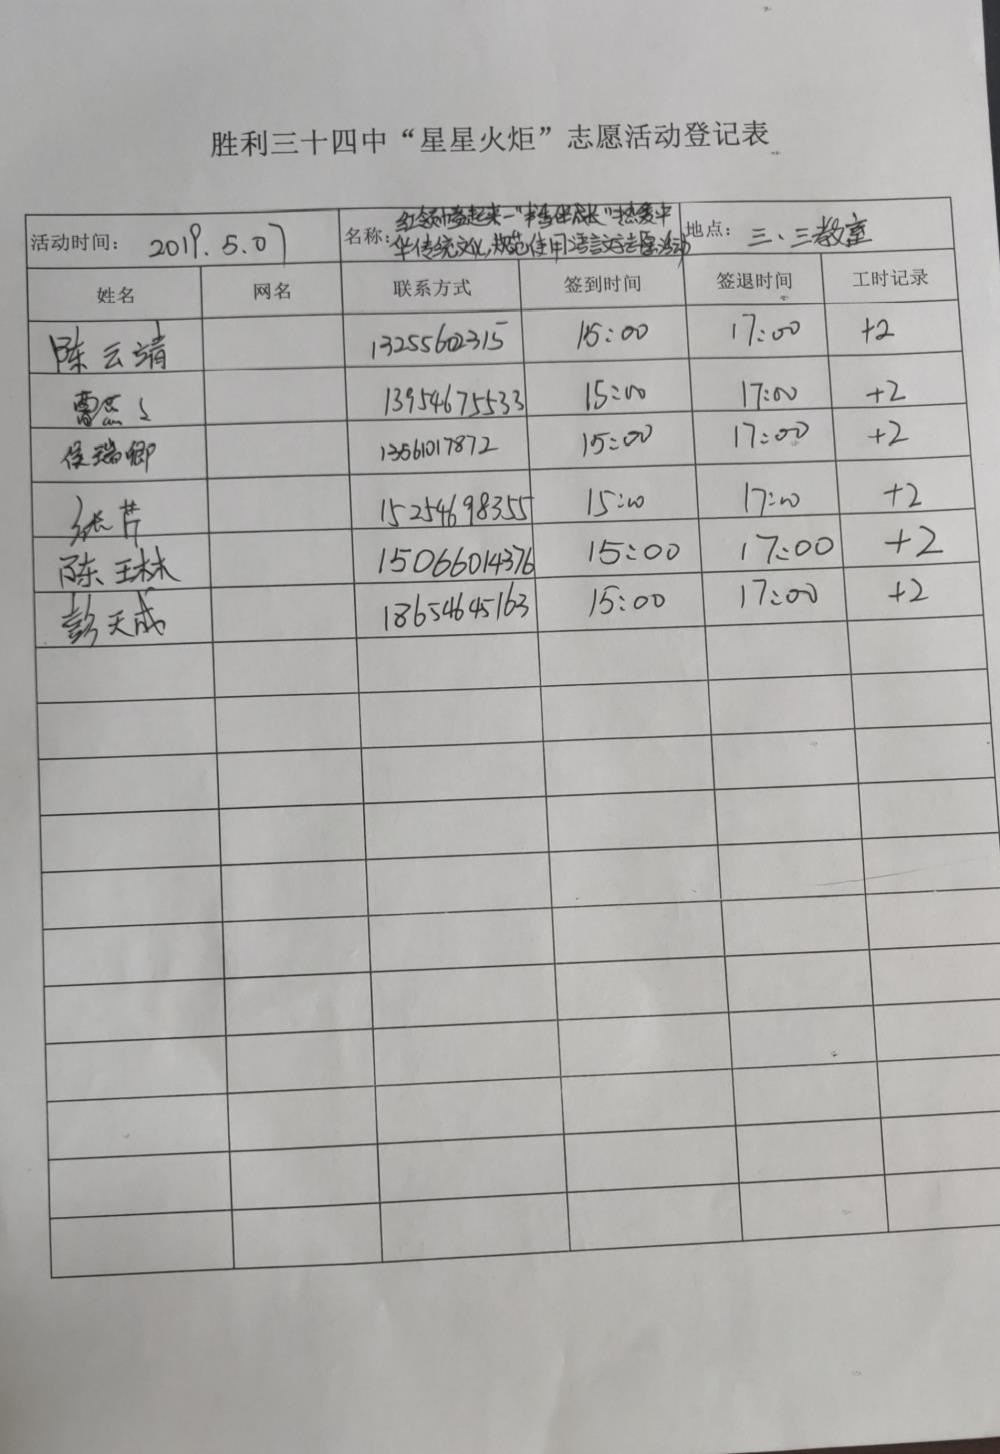 胜利三十四中“星星火炬”志愿活动登记表
活动时间: 2019.5.07 名称: 红领巾 起来一"书香伴成长"热爱中 地点: 三、三教室
华传统文化,规范使用语言文字志愿活动
姓名 网名 联系方式 签到时间 签退时间 工时记录
陈云靖 13255602315 15:00 17:00 +2
曹 13954675533 15:00 17:00 +2
侯瑞卿 13561017872 15:00 17:00 +2
张芹 15254698355 15:00 17:00 +2
陈琳 15066014376 15:00 17:00 +2
彭天成 18654645163 15:00 17:00 +2